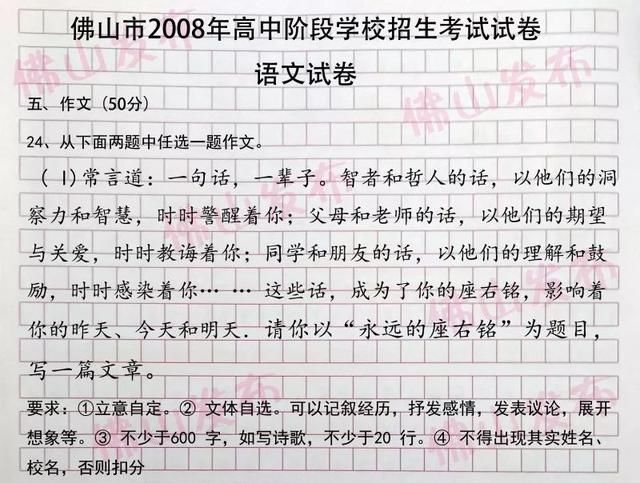 佛山市2008年高中阶段学校招生考试试卷
语文试卷
五、作文（50分）
24、从下面两题中任选一题作文。
( 1)常言道：一句话，一辈子。智者和哲人的话，以他们的洞
察力和智慧，时时警醒着你；父母和老师的话，以他们的期望
与关爱，时时教诲着你；同学和朋友的话，以他们的理解和鼓
励，时时感染着你… … 这些话，成为了你的座右铭，影响着
你的昨天、今天和明天．请你以“永远的座右铭”为题目，
写一篇文章。
要求：①立意自定。② 文体自选。可以记叙经历，抒发感情，发表议论，展开
想象等。③ 不少于600 字，如写诗歌，不少于20 行。④ 不得出现其实姓名、
校名，否则扣分
佛山发布
佛山发布
佛山发布
佛山发布
佛山发布
佛山发布